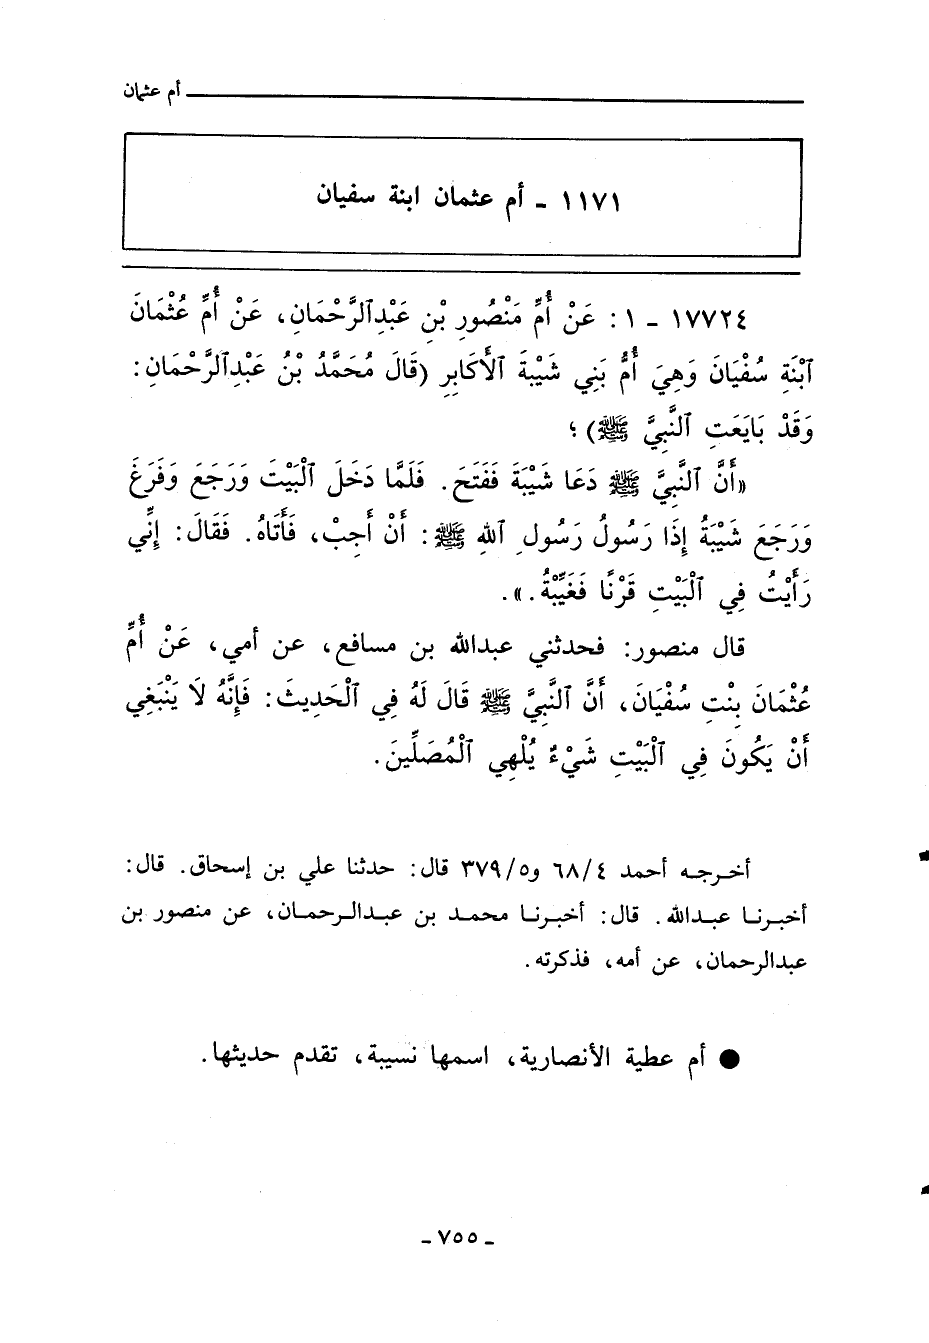 أم عثمان
١١٧١ - أم عثمان ابنة سفيان
١٧٧٢٤ - ١ : عَنْ أُمِّ مَنْصُورِ بْنِ عَبْدِٱلرَّحْمَانِ، عَنْ أُمِّ عُثْمَانَ
ٱبْنَةِ سُفْيَانَ وَهِيَ أُمُّ بَنِي شَيْبَةَ ٱلْأَكَابِرِ (قَالَ مُحَمَّدُ بْنُ عَبْدِٱلرَّحْمَانِ:
وَقَدْ بَايَعَتِ ٱلنَّبِيَّ ﷺ) ؛
«أَنَّ ٱلنَّبِيَّ ﷺ دَعَا شَيْبَةَ فَفَتَحَ. فَلَمَّا دَخَلَ ٱلْبَيْتَ وَرَجَعَ وَفَرَغَ
وَرَجَعَ شَيْبَةُ إِذَا رَسُولُ رَسُولِ ٱللهِ ﷺ: أَنْ أَجِبْ، فَأَتَاهُ. فَقَالَ: إِنِّي
رَأَيْتُ فِي ٱلْبَيْتِ قَرْنًا فَغَيِّبْهُ.».
قال منصور: فحدثني عبدالله بن مسافع، عن أمي، عَنْ أُمِّ
عُثْمَانَ بِنْتِ سُفْيَانَ، أَنَّ ٱلنَّبِيَّ ﷺ قَالَ لَهُ فِي ٱلْحَدِيثَ: فَإِنَّهُ لَا يَنْبَغِي
أَنْ يَكُونَ فِي ٱلْبَيْتِ شَيْءٌ يُلْهِي ٱلْمُصَلِّينَ.
أخرجه أحمد ٦٨/٤ و٣٧٩/٥ قال: حدثنا علي بن إسحاق. قال:
أخبرنا عبدالله. قال: أخبرنا محمد بن عبدالرحمان، عن منصور بن
عبدالرحمان، عن أمه، فذكرته.
● أم عطية الأنصارية، اسمها نسيبة، تقدم حديثها.
- ٧٥٥ -